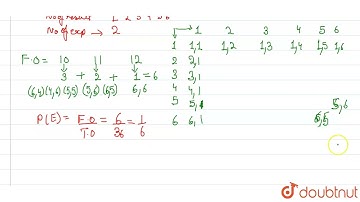 1 2 3 4 5 6
No of exp → 2
F.O = 10 11 12
3 + 2 + 1 = 6
(6,4)(4,6)(5,5) (5,6)(6,5) 6,6
P(E) = F.O / T.O = 6/36 = 1/6
1 2 3 4 5 6
1 1,1 1,2 1,3 1,4 1,5 1,6
2 2,1
3 3,1
4 4,1
5 5,1
5,6
6 6,1
doubtnut